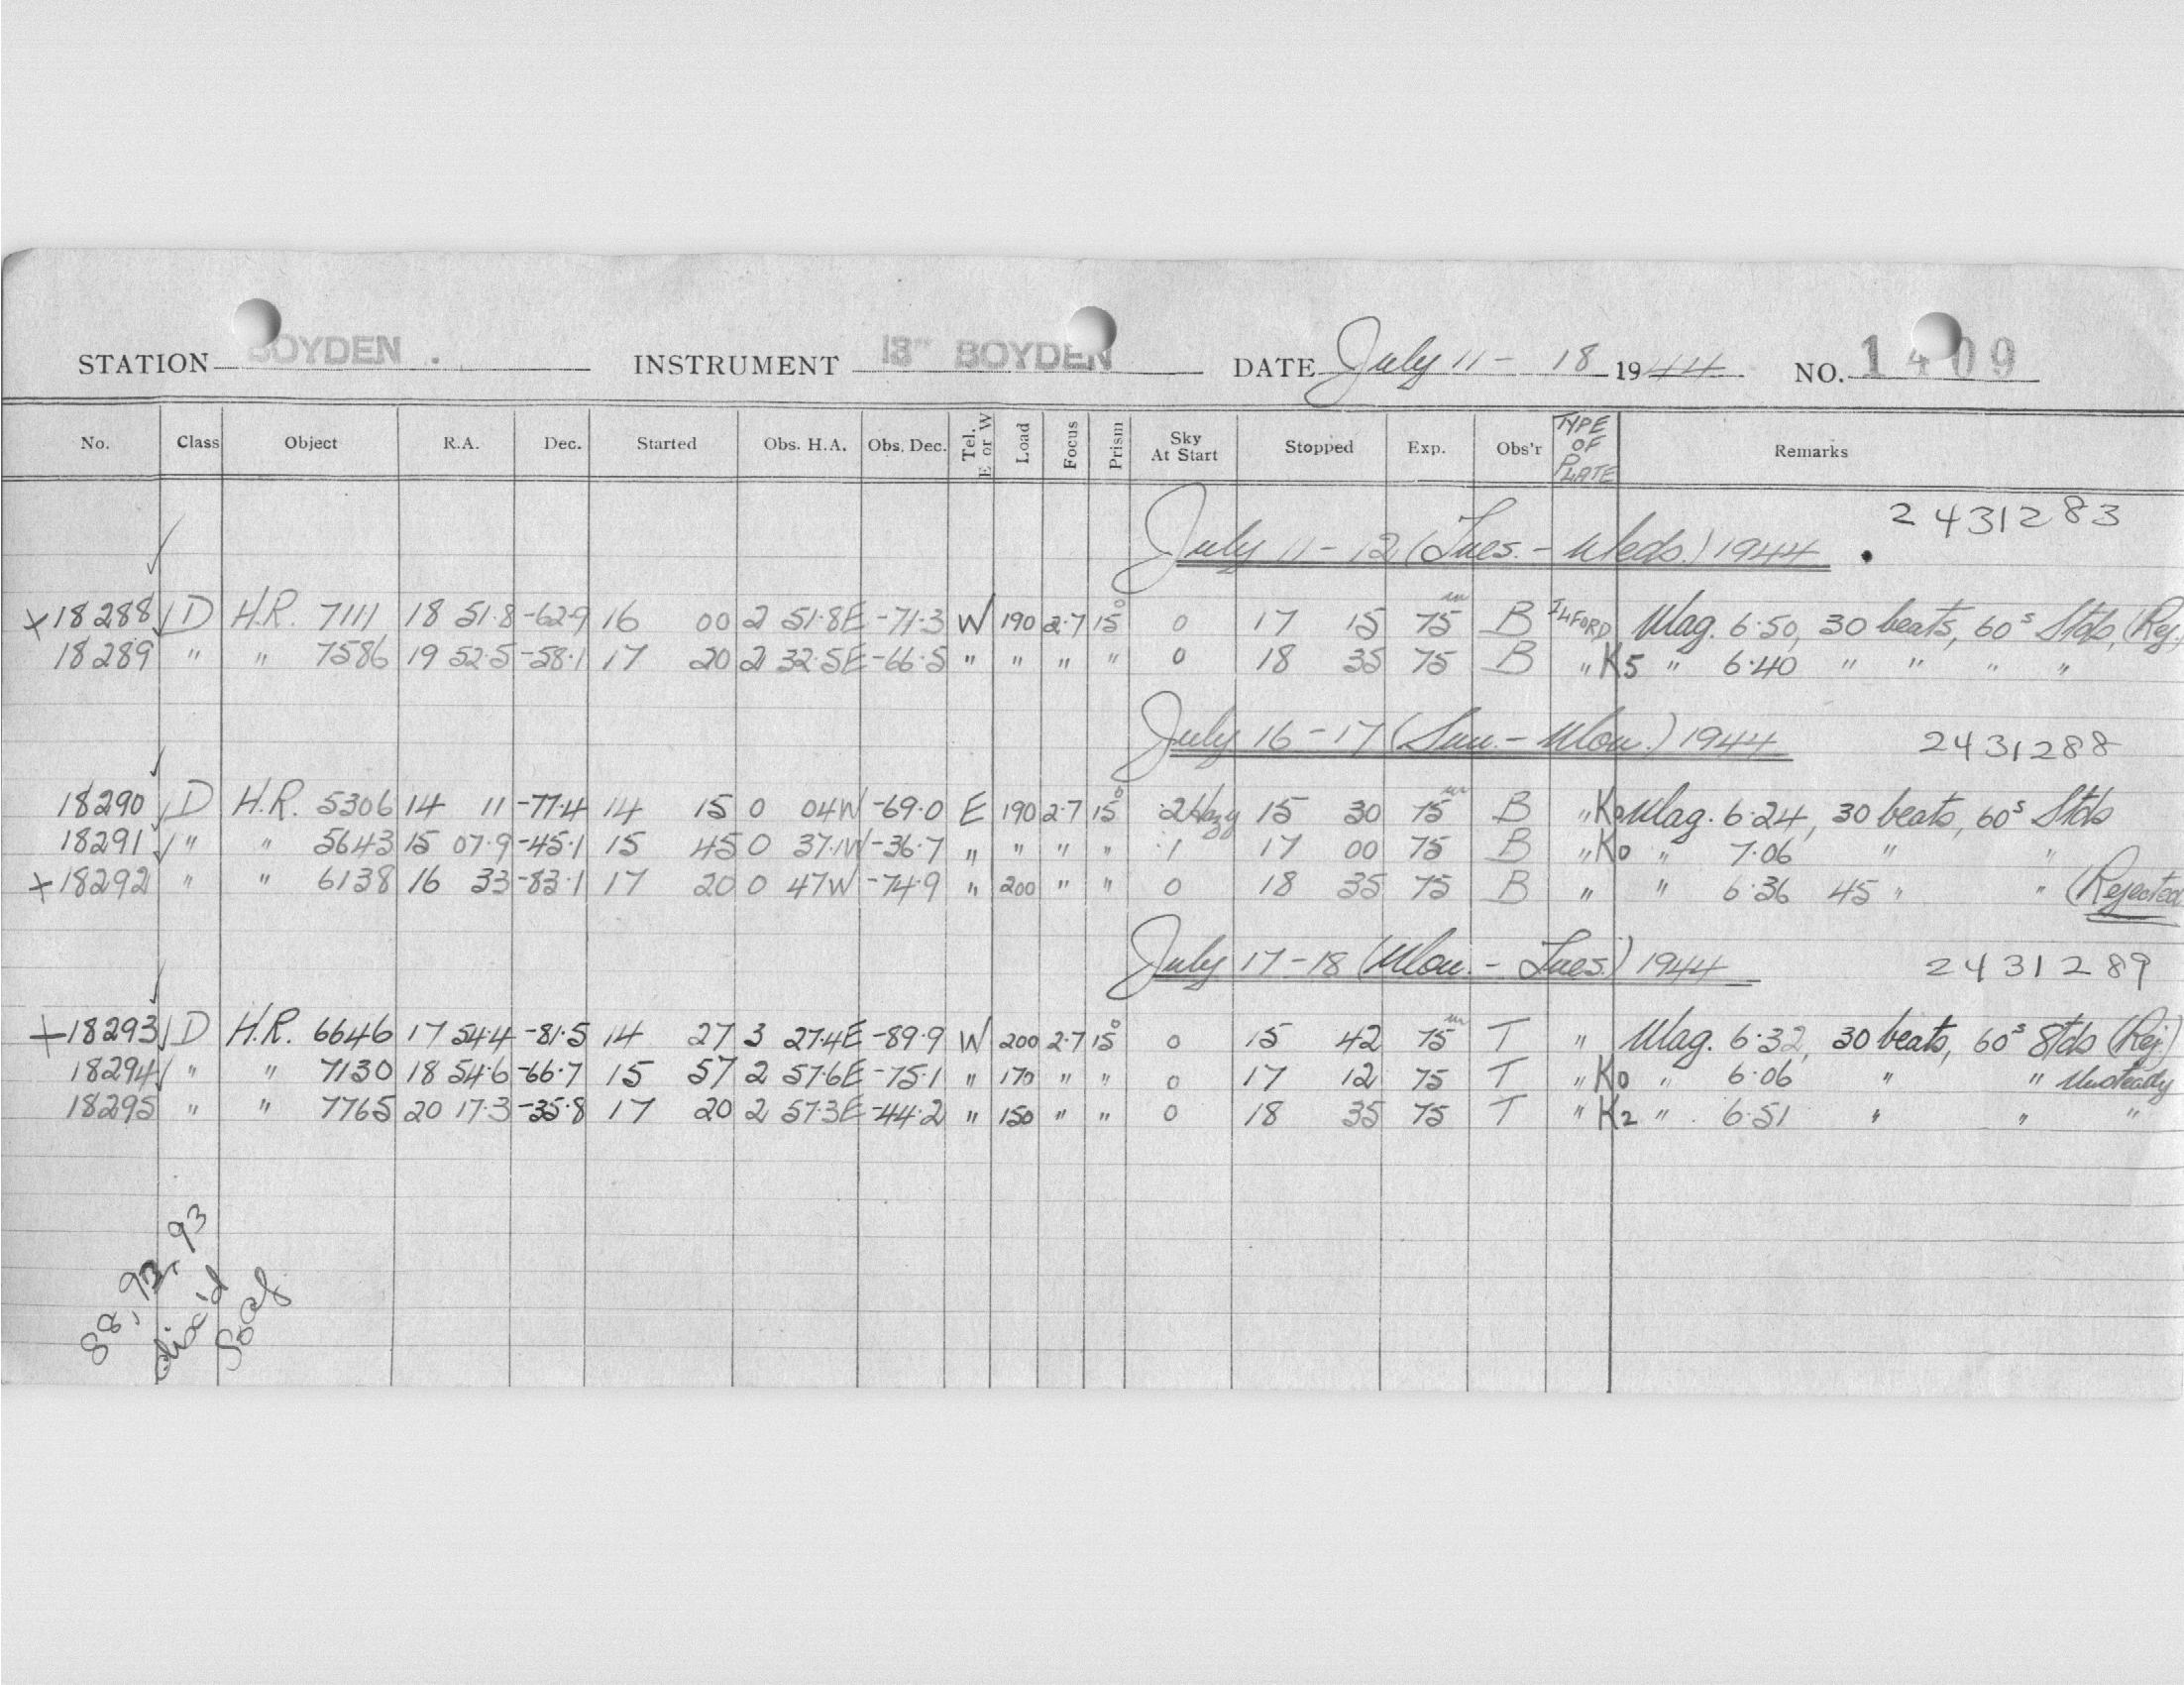 STATION BOYDEN . INSTRUMENT 13" BOYDEN DATE July 11 - 18 1944 NO. 1409
No. Class Object R.A. Dec. Started Obs. H.A. Obs. Dec. Tel. E or W Load Focus Prism Sky At Start Stopped Exp. Obs'r TYPE OF PLATE Remarks
2431283
July 11-12 (Tues. - Weds.) 1944
x 18288 D H.R. 7111 18 51.8 -62.9 16 00 2 51.8E -71.3 W 190 2.7 15° 0 17 15 75m B ILFORD Mag. 6.50, 30 beats, 60s Stds, (Rej.
18289 " " 7586 19 52.5 -58.1 17 20 2 32.5E -66.5 " " " " 0 18 35 75 B " K5 " 6.40 " " " "
July 16-17 (Sun. - Mon.) 1944 2431288
18290 D H.R. 5306 14 11 -77.4 14 15 0 04W -69.0 E 190 2.7 15° .2 Hazy 15 30 75m B " K0 Mag. 6.24, 30 beats, 60s Stds
18291 " " 5643 15 07.9 -45.1 15 45 0 37.1W -36.7 " " " " .1 17 00 75 B " K0 " 7.06 " "
x 18292 " " 6138 16 33 -83.1 17 20 0 47W -74.9 " 200 " " 0 18 35 75 B " " 6.36 45 " " (Rejected
July 17-18 (Mon. - Tues.) 1944 2431289
x 18293 D H.R. 6646 17 54.4 -81.5 14 27 3 27.4E -89.9 W 200 2.7 15° 0 15 42 75m T " Mag. 6.32, 30 beats, 60s Stds (Rej.)
18294 " " 7130 18 54.6 -66.7 15 57 2 57.6E -75.1 " 170 " " 0 17 12 75 T " K0 " 6.06 " " Unsteady
18295 " " 7765 20 17.3 -35.8 17 20 2 57.3E -44.2 " 150 " " 0 18 35 75 T " K2 " 6.51 " " "
88, 92, 93
disc'd